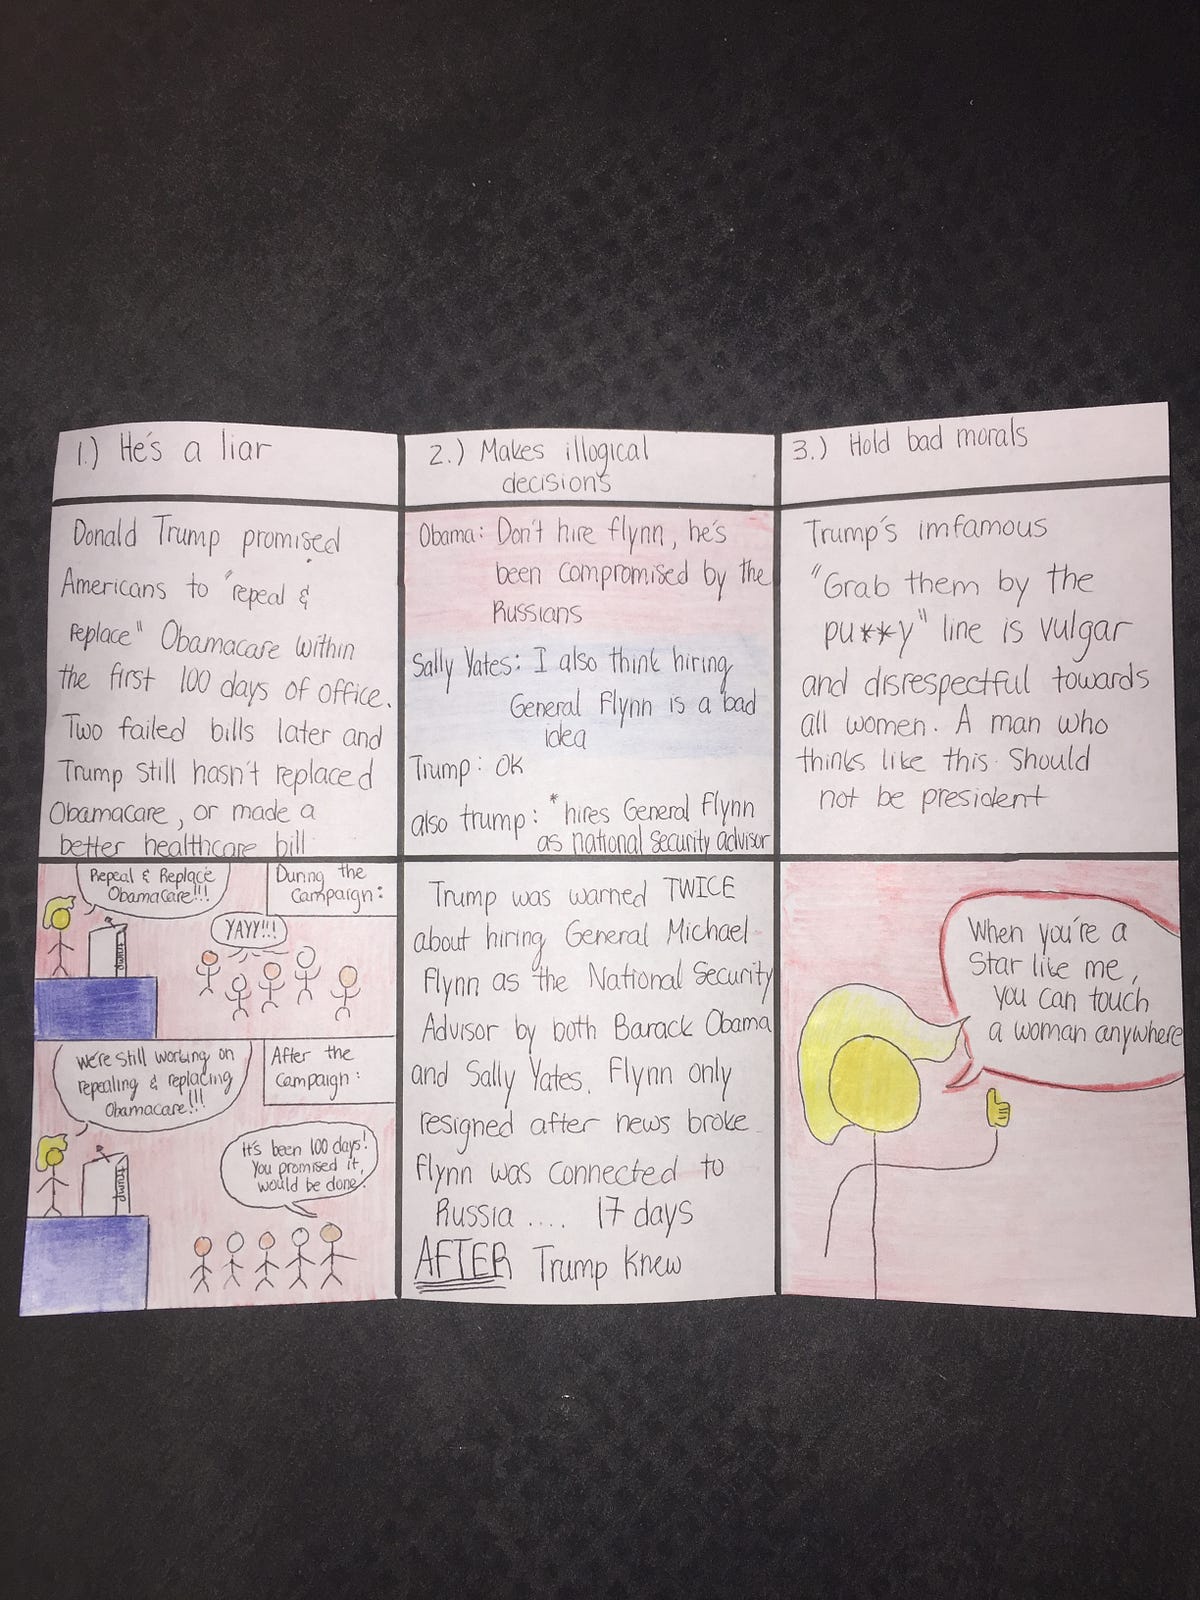 1.) He's a liar
Donald Trump promised
Americans to "repeal &
replace" Obamacare within
the first 100 days of office.
Two failed bills later and
Trump still hasn't replaced
Obamacare, or made a
better healthcare bill
Repeal & Replace
Obamacare!!!
During the
Campaign:
YAYY!!!
trump
We're still working on
repealing & replacing
Obamacare!!!
After the
Campaign:
It's been 100 days!
You promised it,
would be done.
trump
2.) Makes illogical
decisions
Obama: Don't hire flynn, he's
been compromised by the
Russians
Sally Yates: I also think hiring
General Flynn is a bad
idea
Trump: OK
also trump: *hires General Flynn
as national security advisor
Trump was warned TWICE
about hiring General Michael
Flynn as the National Security
Advisor by both Barack Obama
and Sally Yates. Flynn only
resigned after news broke
Flynn was connected to
Russia .... 17 days
AFTER Trump knew
3.) Hold bad morals
Trump's imfamous
"Grab them by the
pu**y" line is vulgar
and disrespectful towards
all women. A man who
thinks like this should
not be president
When you're a
Star like me,
you can touch
a woman anywhere